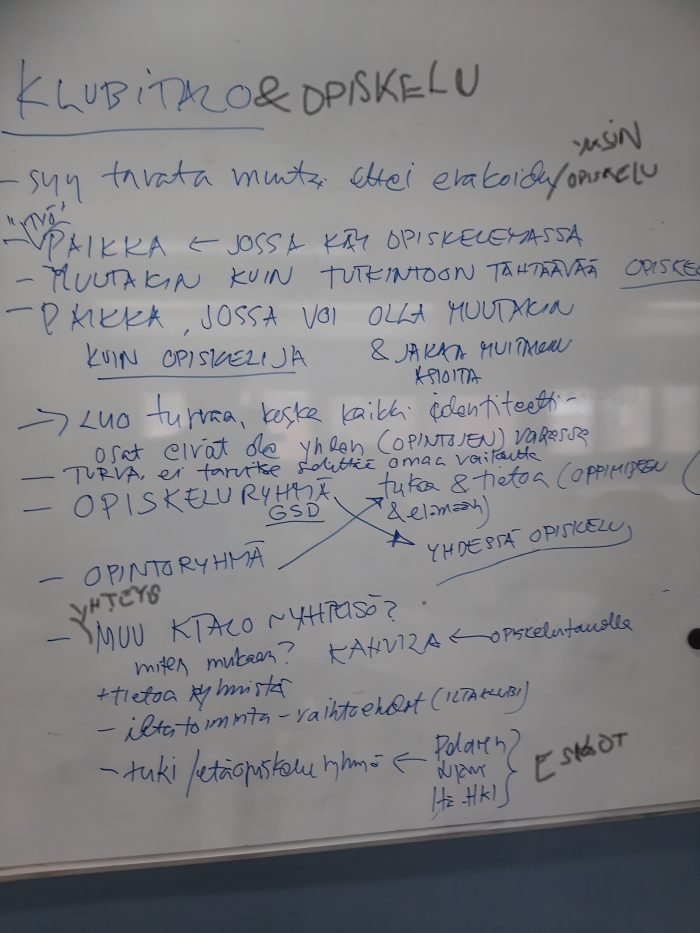 KLUBITALO & OPISKELU
- syy tavata muita, ettei erakoidu / YKSIN OPISKELU
"TYÖ"
- PAIKKA ← JOSSA KÄY OPISKELEMASSA
- MUUTAKIN KUIN TUTKINTOON TÄHTÄÄVÄÄ OPISKE
- PAIKKA, JOSSA VOI OLLA MUUTAKIN
KUIN OPISKELIJA & JAKAA MUITAKIN
ASIOITA
→ LUO turvaa, koska kaikki identiteetti-
osat eivät ole yhden (OPINTOJEN) varassa
- TURVA, ei tarvitse selittää omaa
- OPISKELURYHMÄ tukea & tietoa (OPPIMISEEN
GSD & elämään)
YHDESSÄ OPISKELU
- OPINTORYHMÄ
YHTEYS
- MUU KTALO ~ YHTEISÖ?
miten mukaan? KAHVILA ← opiskelutauolla
+ tietoa ryhmistä
- iltatoiminta - vaihtoehdot (ILTAKLUBI)
- tuki / etäopiskeluryhmä ←
Itä-HKI